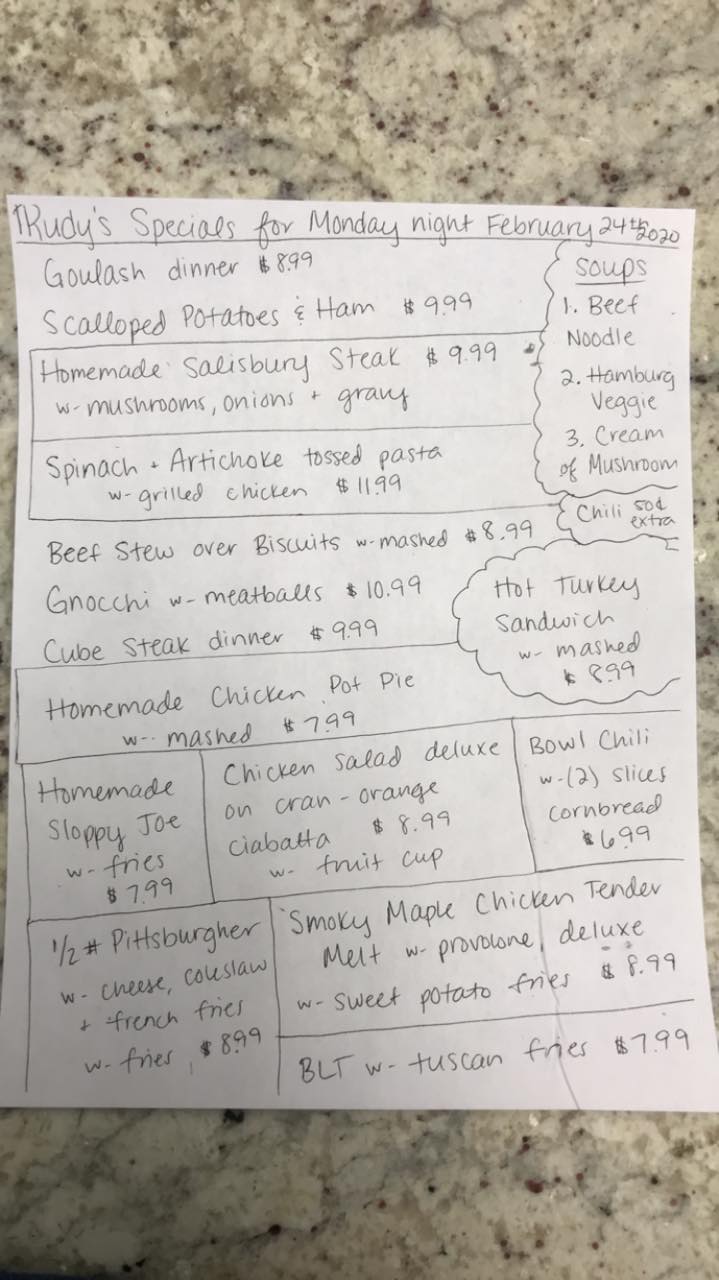 Rudy's Specials for Monday night February 24th 2020
Goulash dinner $8.99
Scalloped Potatoes & Ham $9.99
Homemade Salisbury Steak $9.99
w- mushrooms, onions + gravy
Spinach + Artichoke tossed pasta
w- grilled chicken $11.99
Beef Stew over Biscuits w- mashed $8.99
Gnocchi w- meatballs $10.99
Cube Steak dinner $9.99
Homemade Chicken Pot Pie
w-- mashed $7.99
Soups
1. Beef
Noodle
2. Hamburg
Veggie
3. Cream
of Mushroom
Chili 50¢
extra
Hot Turkey
Sandwich
w- mashed
$8.99
Homemade
Sloppy Joe
w- fries
$7.99
Chicken Salad deluxe
on cran-orange
ciabatta $8.99
w- fruit cup
Bowl Chili
w-(2) slices
cornbread
$6.99
1/2 # Pittsburgher
w- cheese, coleslaw
+ french fries
w- fries $8.99
Smoky Maple Chicken Tender
Melt w- provolone, deluxe
w- sweet potato fries $8.99
BLT w- tuscan fries $7.99